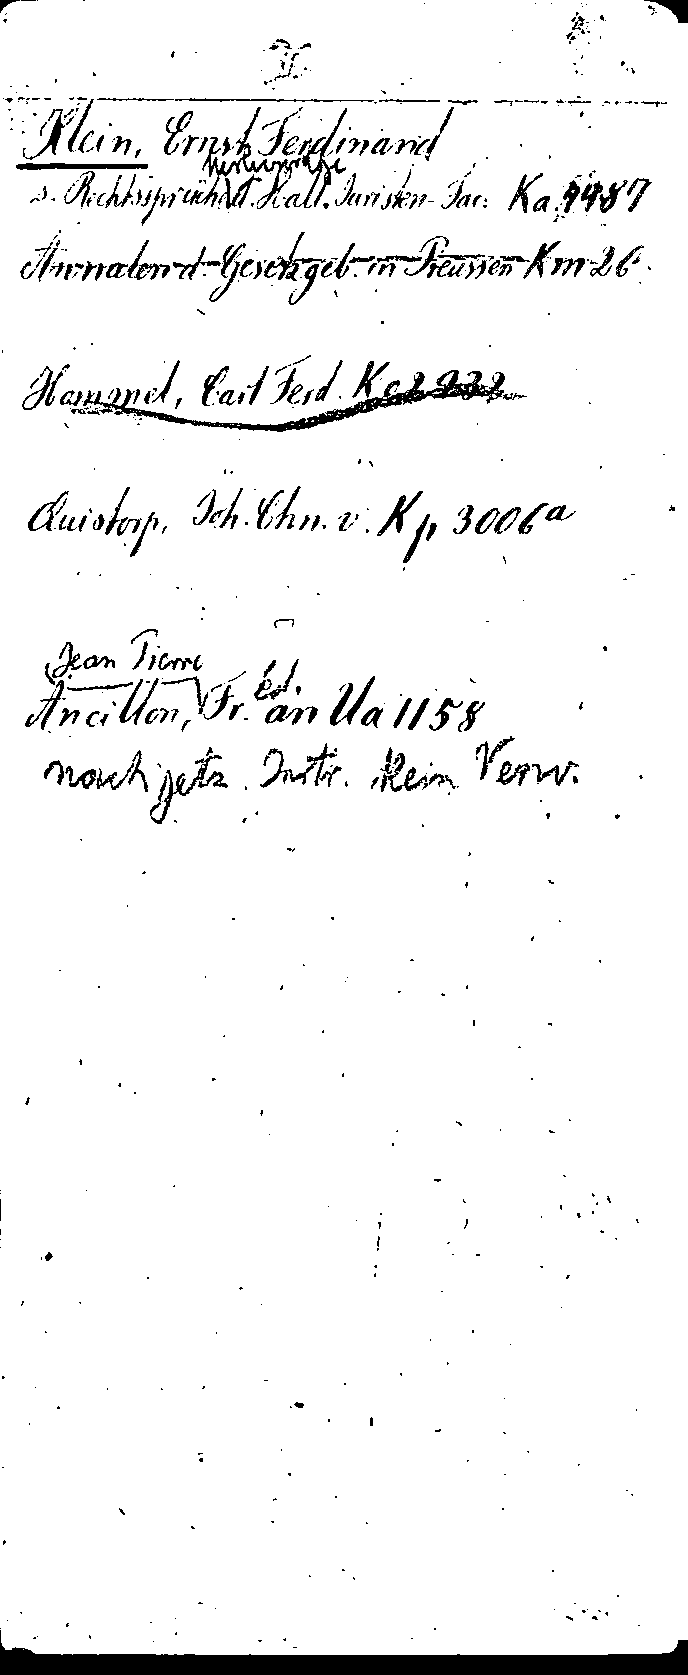 Klein, Ernst Ferdinand
s. Rechtssprüche d. Hall. Juristen-Fac: Ka 4487
Annalen d. Gesetzgeb. in Preussen Km 26
Hommel, Carl Ferd. Kc 2932
Quistorp, Joh. Chn. v. Kp 3006a
Jean Pierre
Ancillon, Fr. ed. an Ua 1158
nach jetz. Instr. kein Verw.